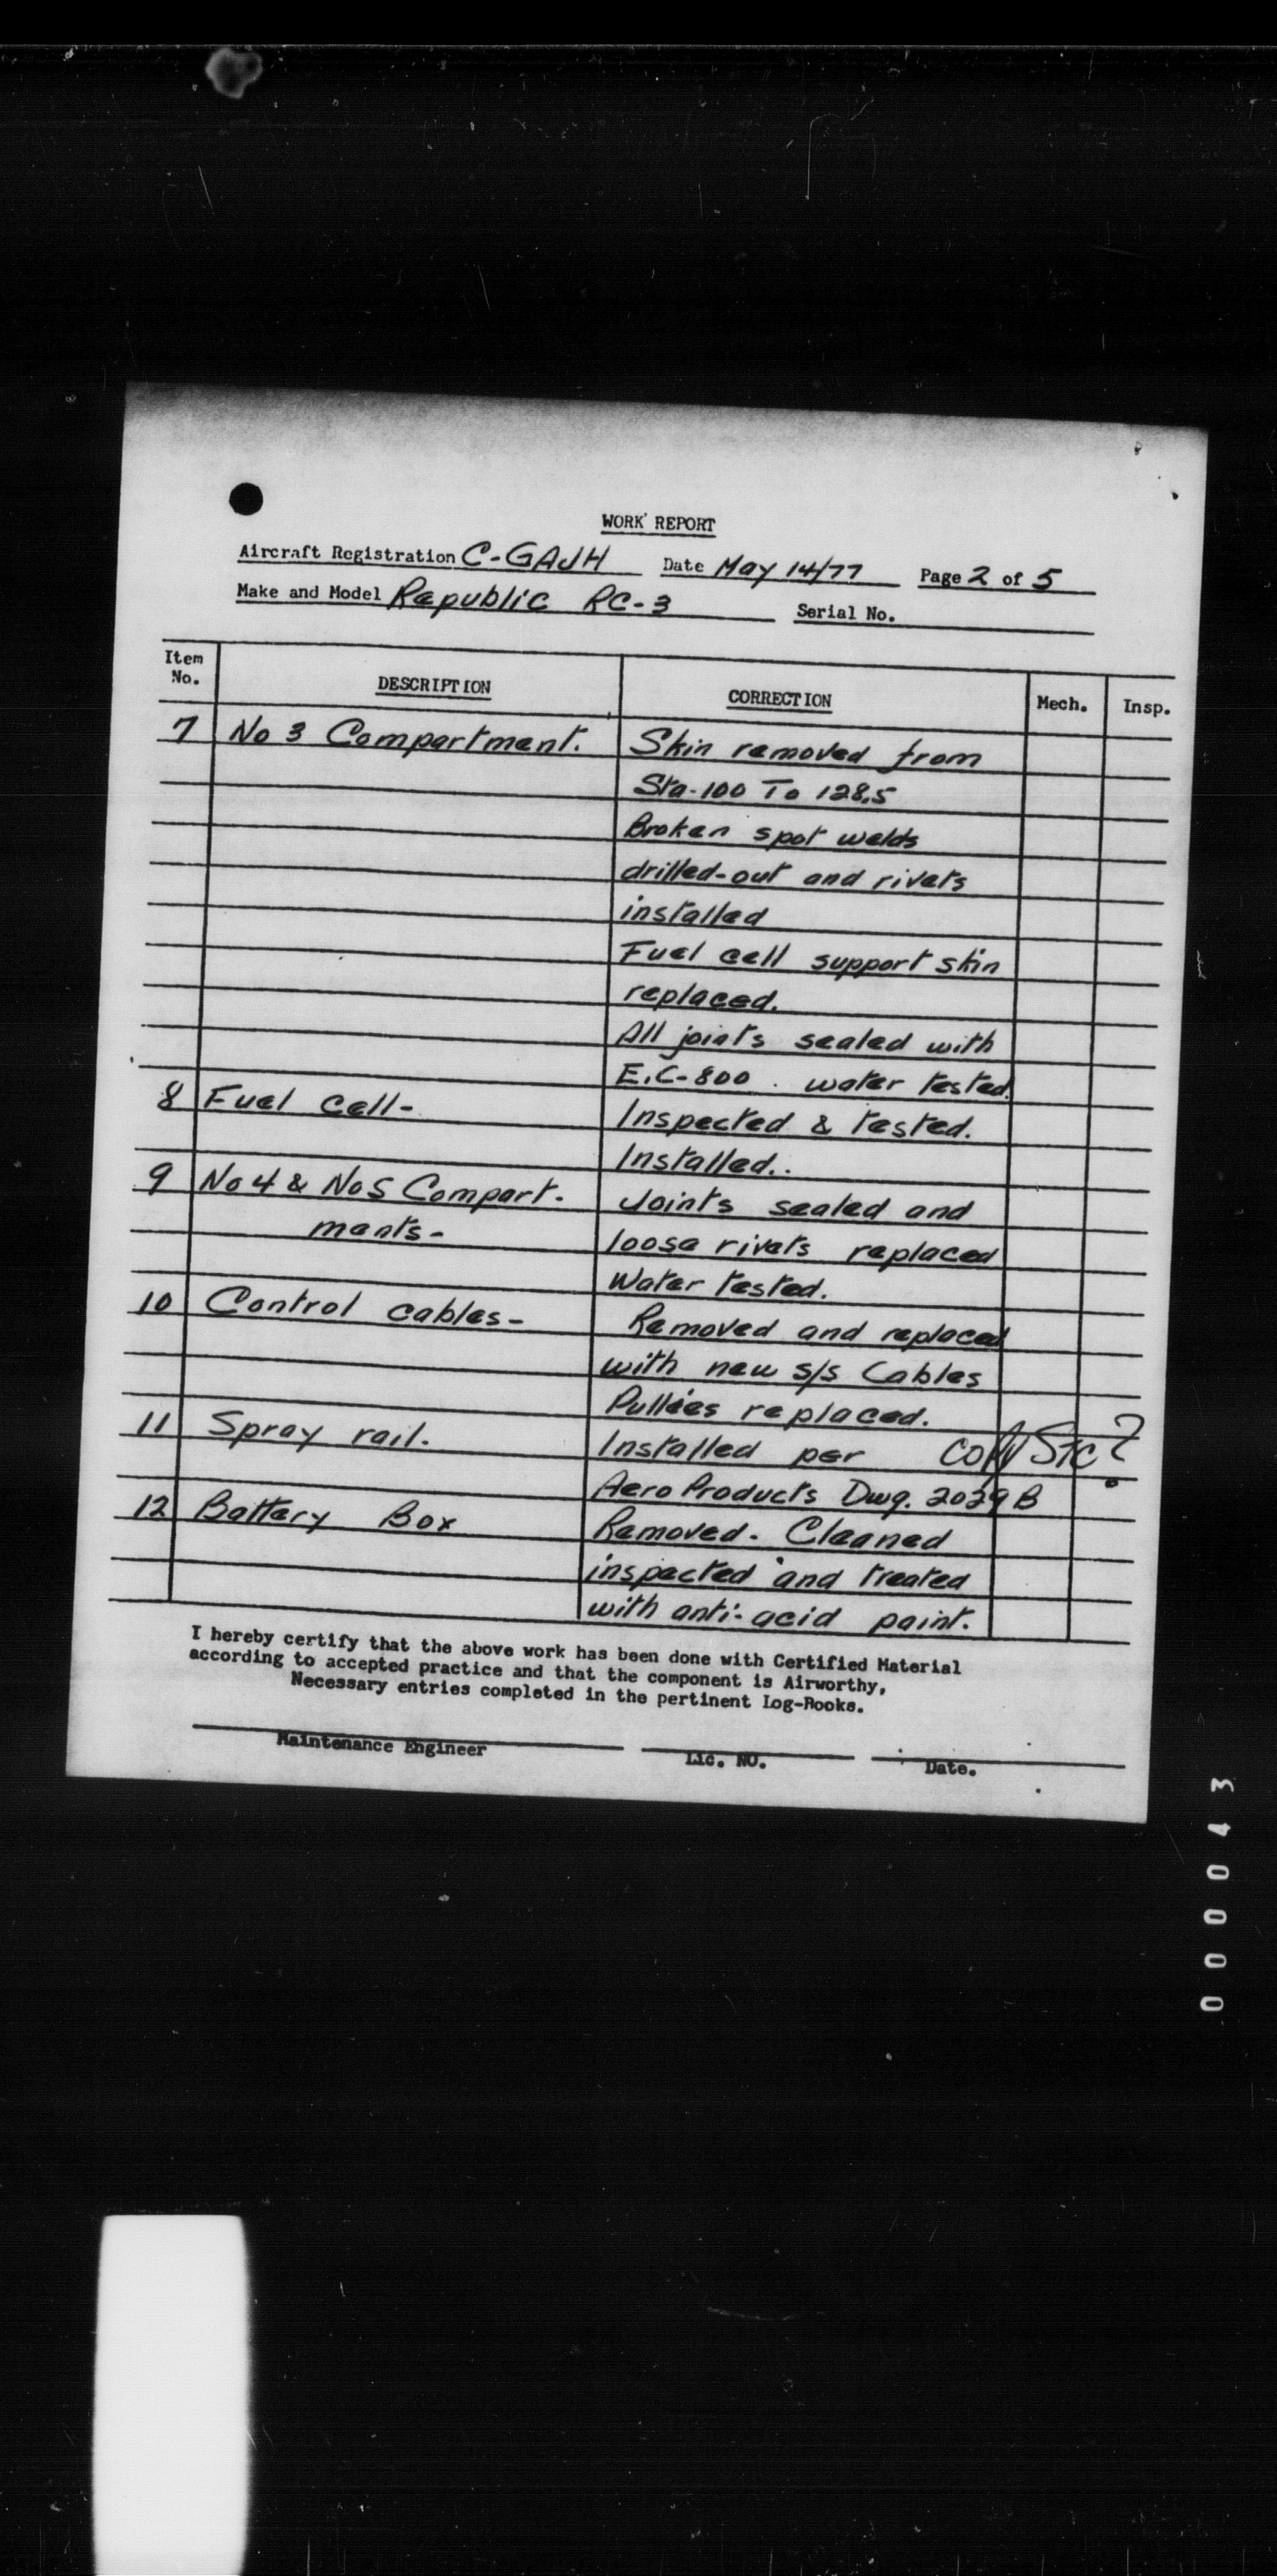 WORK REPORT
Aircraft Registration C-GAJH Date May 14/77 Page 2 of 5
Make and Model Republic RC-3 Serial No.
Item No. DESCRIPTION CORRECTION Mech. Insp.
7 No 3 Compartment. Skin removed from
Sta-100 To 128.5
Broken spot welds
drilled-out and rivets
installed
Fuel cell support skin
replaced.
All joints sealed with
E.C-800. water tested.
8 Fuel cell- Inspected & tested.
Installed..
9 No 4 & No 5 Compart- Joints sealed and
ments- loose rivets replaced
Water tested.
10 Control cables- Removed and replaced
with new s/s Cables
Pullies replaced.
11 Spray rail. Installed per copy STC?
Aero Products Dwg. 2029B
12 Battery Box Removed. Cleaned
inspected and treated
with anti-acid paint.
I hereby certify that the above work has been done with Certified Material
according to accepted practice and that the component is Airworthy,
Necessary entries completed in the pertinent Log-Books.
Maintenance Engineer Lic. NO. Date.
000043